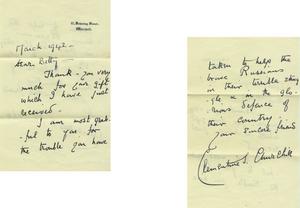 10, Downing Street,
Whitehall.
March 1942 -
Dear Betty
Thank-you very
much for your gift
which I have just
received -
I am most grate-
ful to you for
the trouble you have
taken to help the
brave Russians
in their terrible strug-
gle & in the glo-
rious defence of
their country
your sincere friend
Clementine S. Churchill